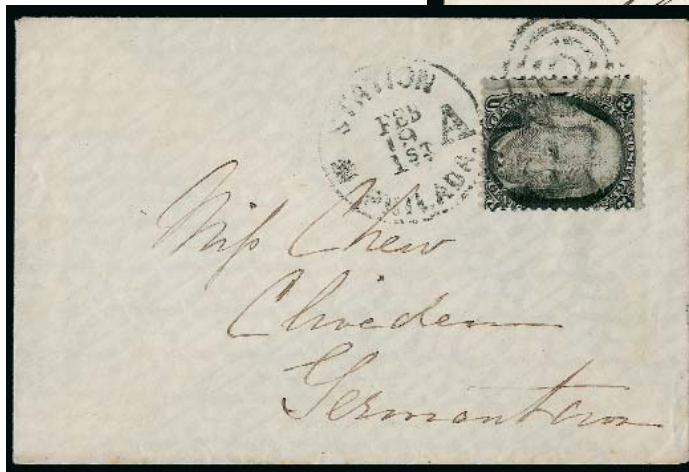 STATION
A
FEB
1ST
PHILADA.
Miss Chew
Cliveden
Germantown